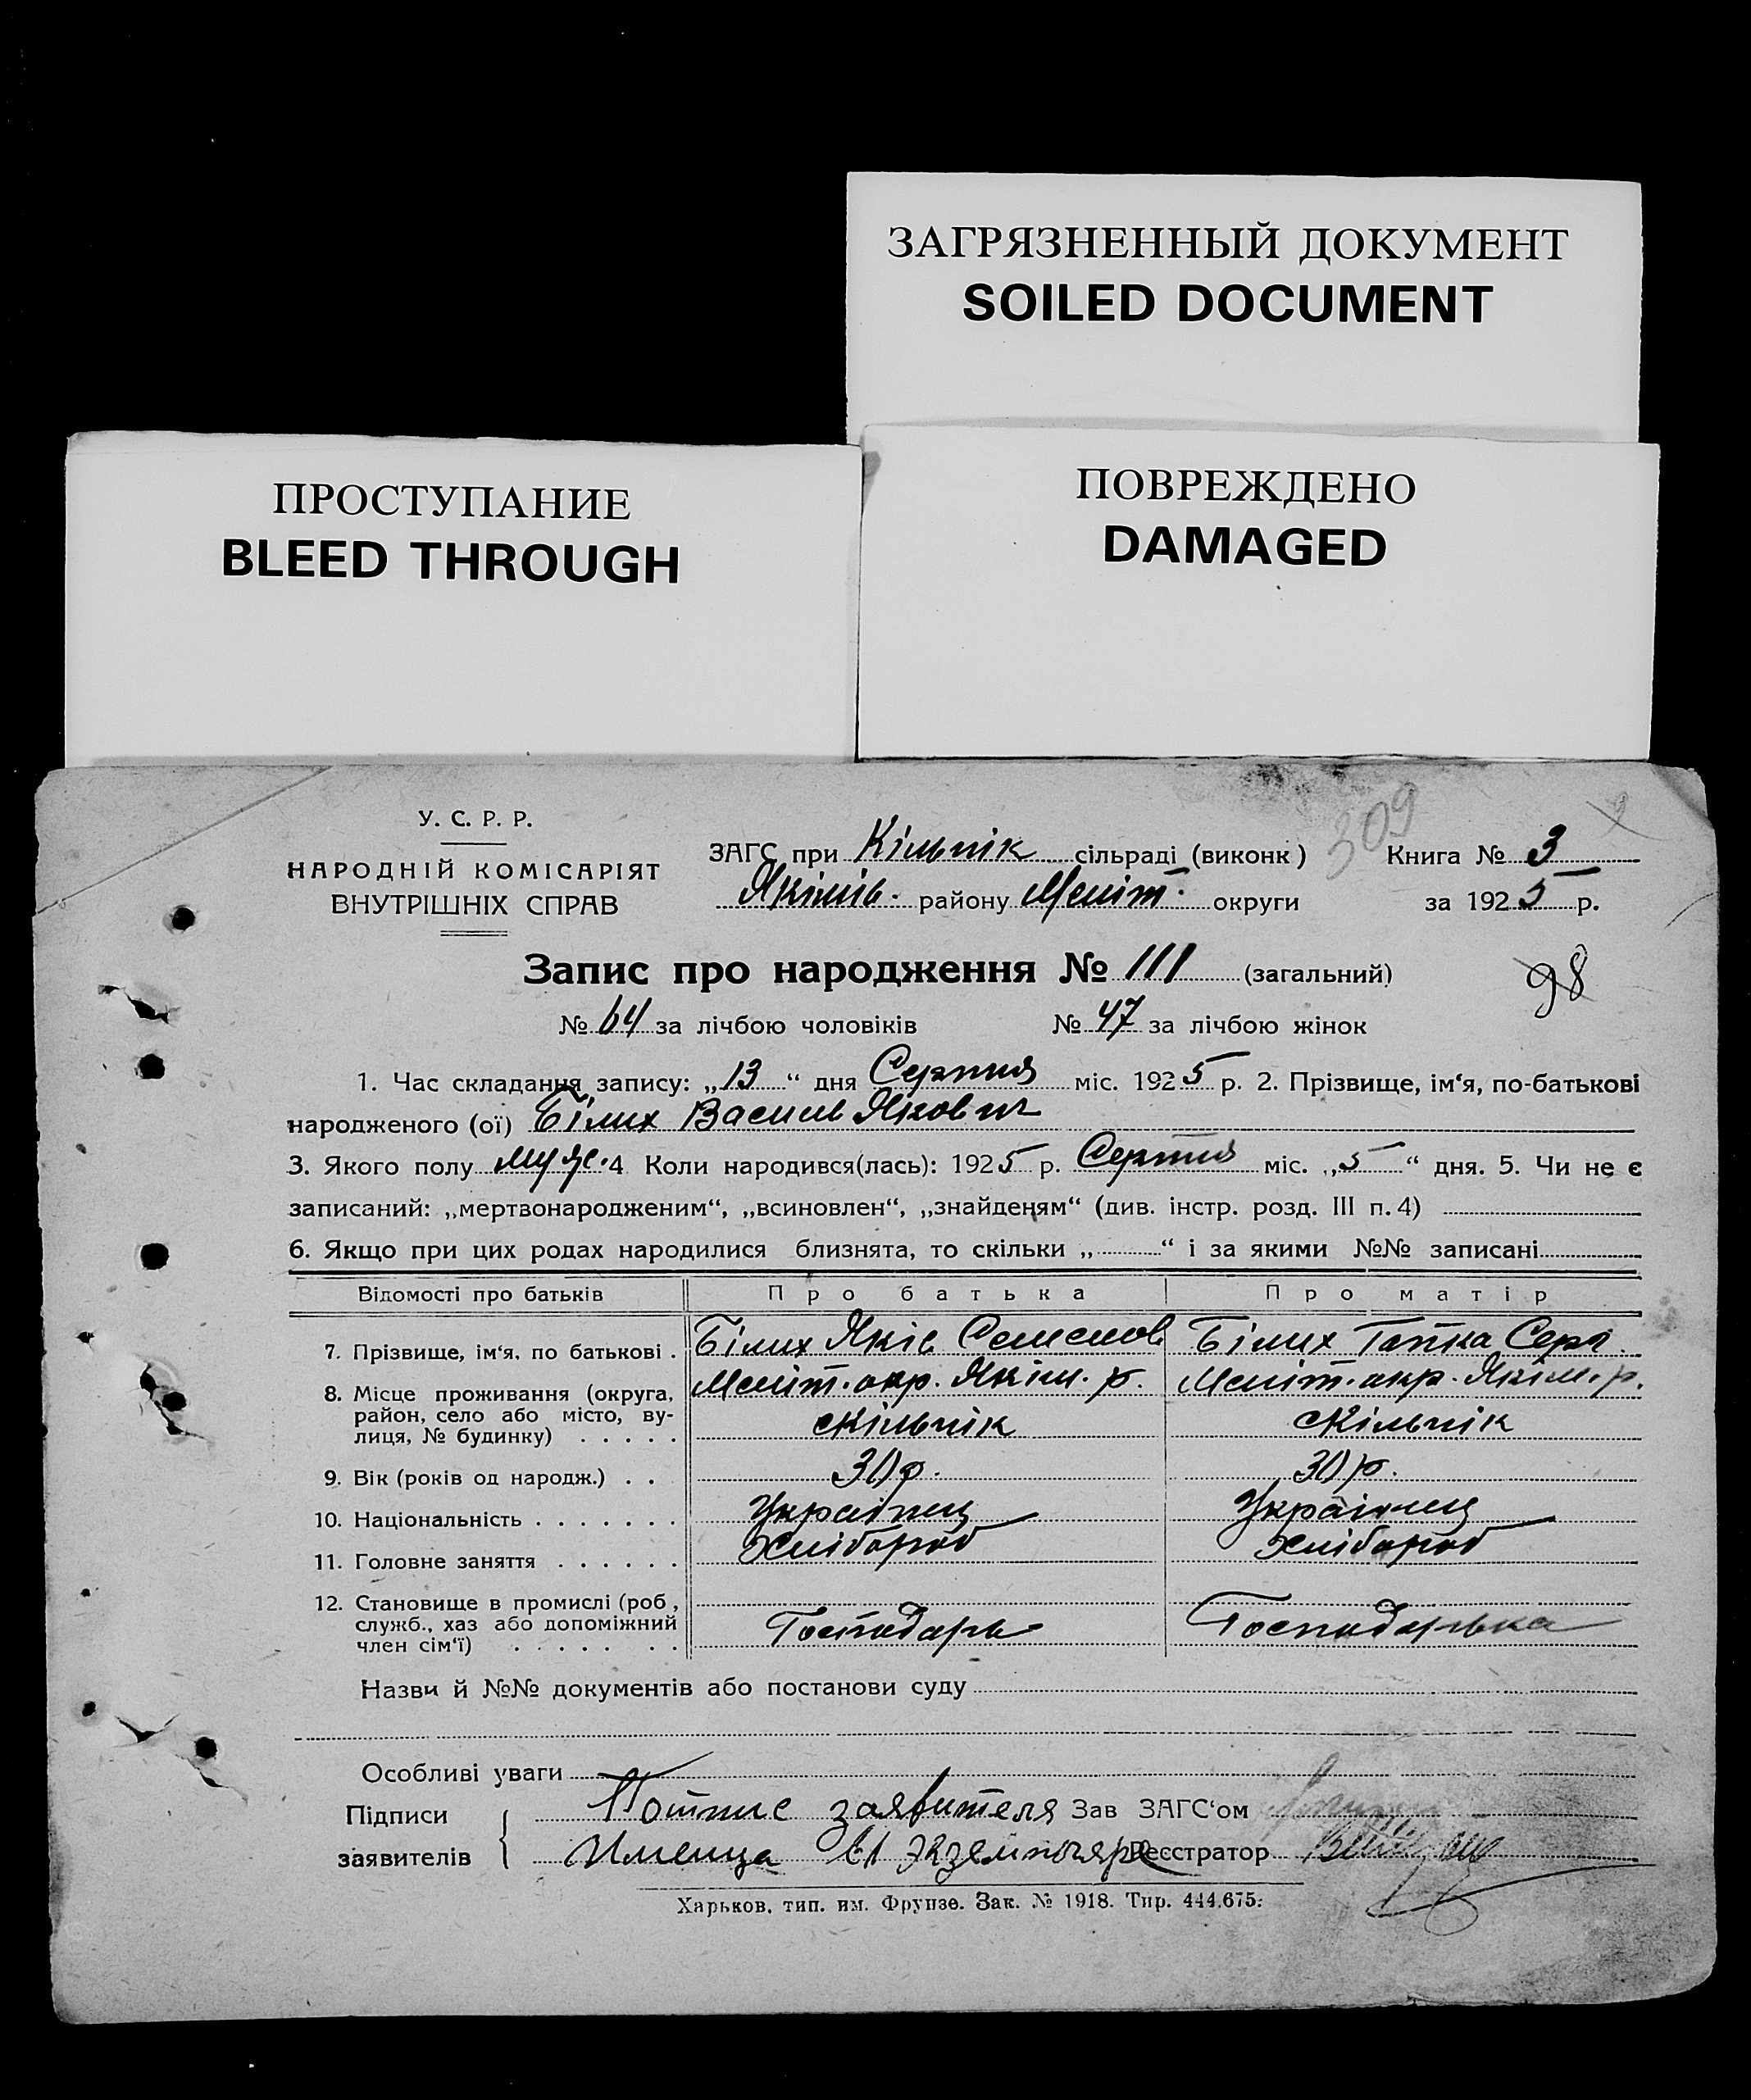 ЗАГРЯЗНЕННЫЙ ДОКУМЕНТ
SOILED DOCUMENT
ПРОСТУПАНИЕ
BLEED THROUGH
ПОВРЕЖДЕНО
DAMAGED
309
У. С. Р. Р.
НАРОДНІЙ КОМІСАРІЯТ
ВНУТРІШНІХ СПРАВ
ЗАГС при Кільчік сільраді (виконк)
Книга № 3
Якімів. району Меліт. округи
за 1925 р.
Запис про народження № 111 (загальний)
98
№ 64 за лічбою чоловіків № 47 за лічбою жінок
1. Час складання запису: „13“ дня Серпня міс. 1925 р. 2. Прізвище, ім‘я, по-батькові
народженого (ої) Білих Василь Якович
3. Якого полу муж. 4 Коли народився(лась): 1925 р. Серпня міс. „5“ дня. 5. Чи не є
записаний: „мертвонародженим“, „всиновлен“, „знайденям“ (див. інстр. розд. III п. 4)
6. Якщо при цих родах народилися близнята, то скільки „ “ і за якими №№ записані
Відомості про батьків Про батька Про матір
7. Прізвище, ім‘я, по батькові . Білих Яків Семенов Білих Гапка Серг.
8. Місце проживання (округа, Меліт. окр. Якім. р. Меліт. окр. Якім. р.
район, село або місто, ву-
лиця, № будинку) . . . . . сКільчік сКільчік
9. Вік (років од народж.) . . 30 р. 30 р.
10. Національність . . . . . . . Українец Українец
11. Головне заняття . . . . . . Хлібороб Хлібороб
12. Становище в промислі (роб.,
служб., хаз або допоміжний Господарь Господарька
член сім‘ї) . . . . . . .
Назви й №№ документів або постанови суду
Особливі уваги
Підписи
заявителів
Потпис заявителя Зав ЗАГС‘ом
Имеица Реєстратор
Харьков, тип. им. Фрунзе. Зак. № 1918. Тир. 444.675.